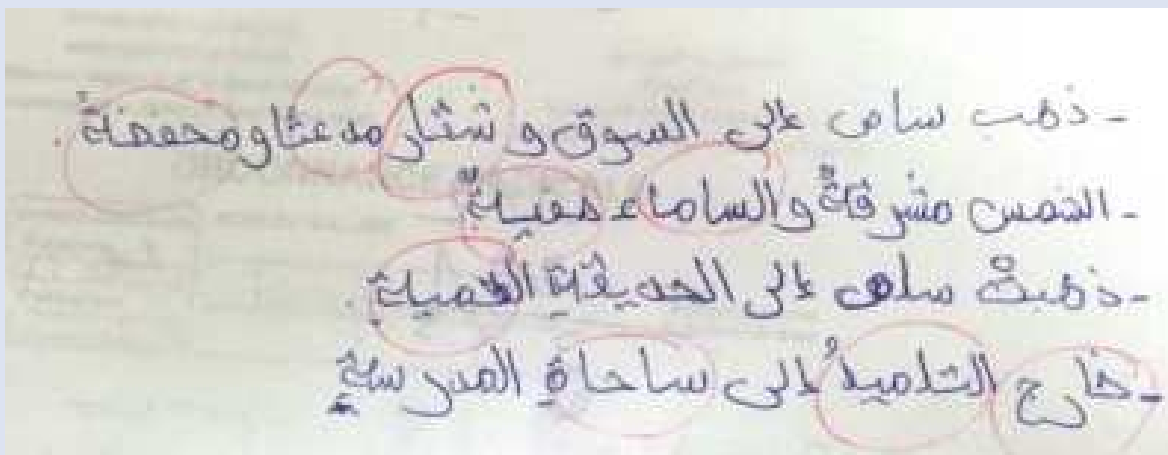 - ذهب سامي إلى السوق و شتار مدعثا و محفضة.
- الشمس مشرقةٌ والساماء صفيةٌ.
- ذهبتْ سلمى إلى الحديقةِ الجميلةِ.
- خارج التلاميذُ إلى ساحاةِ المدرسةِ